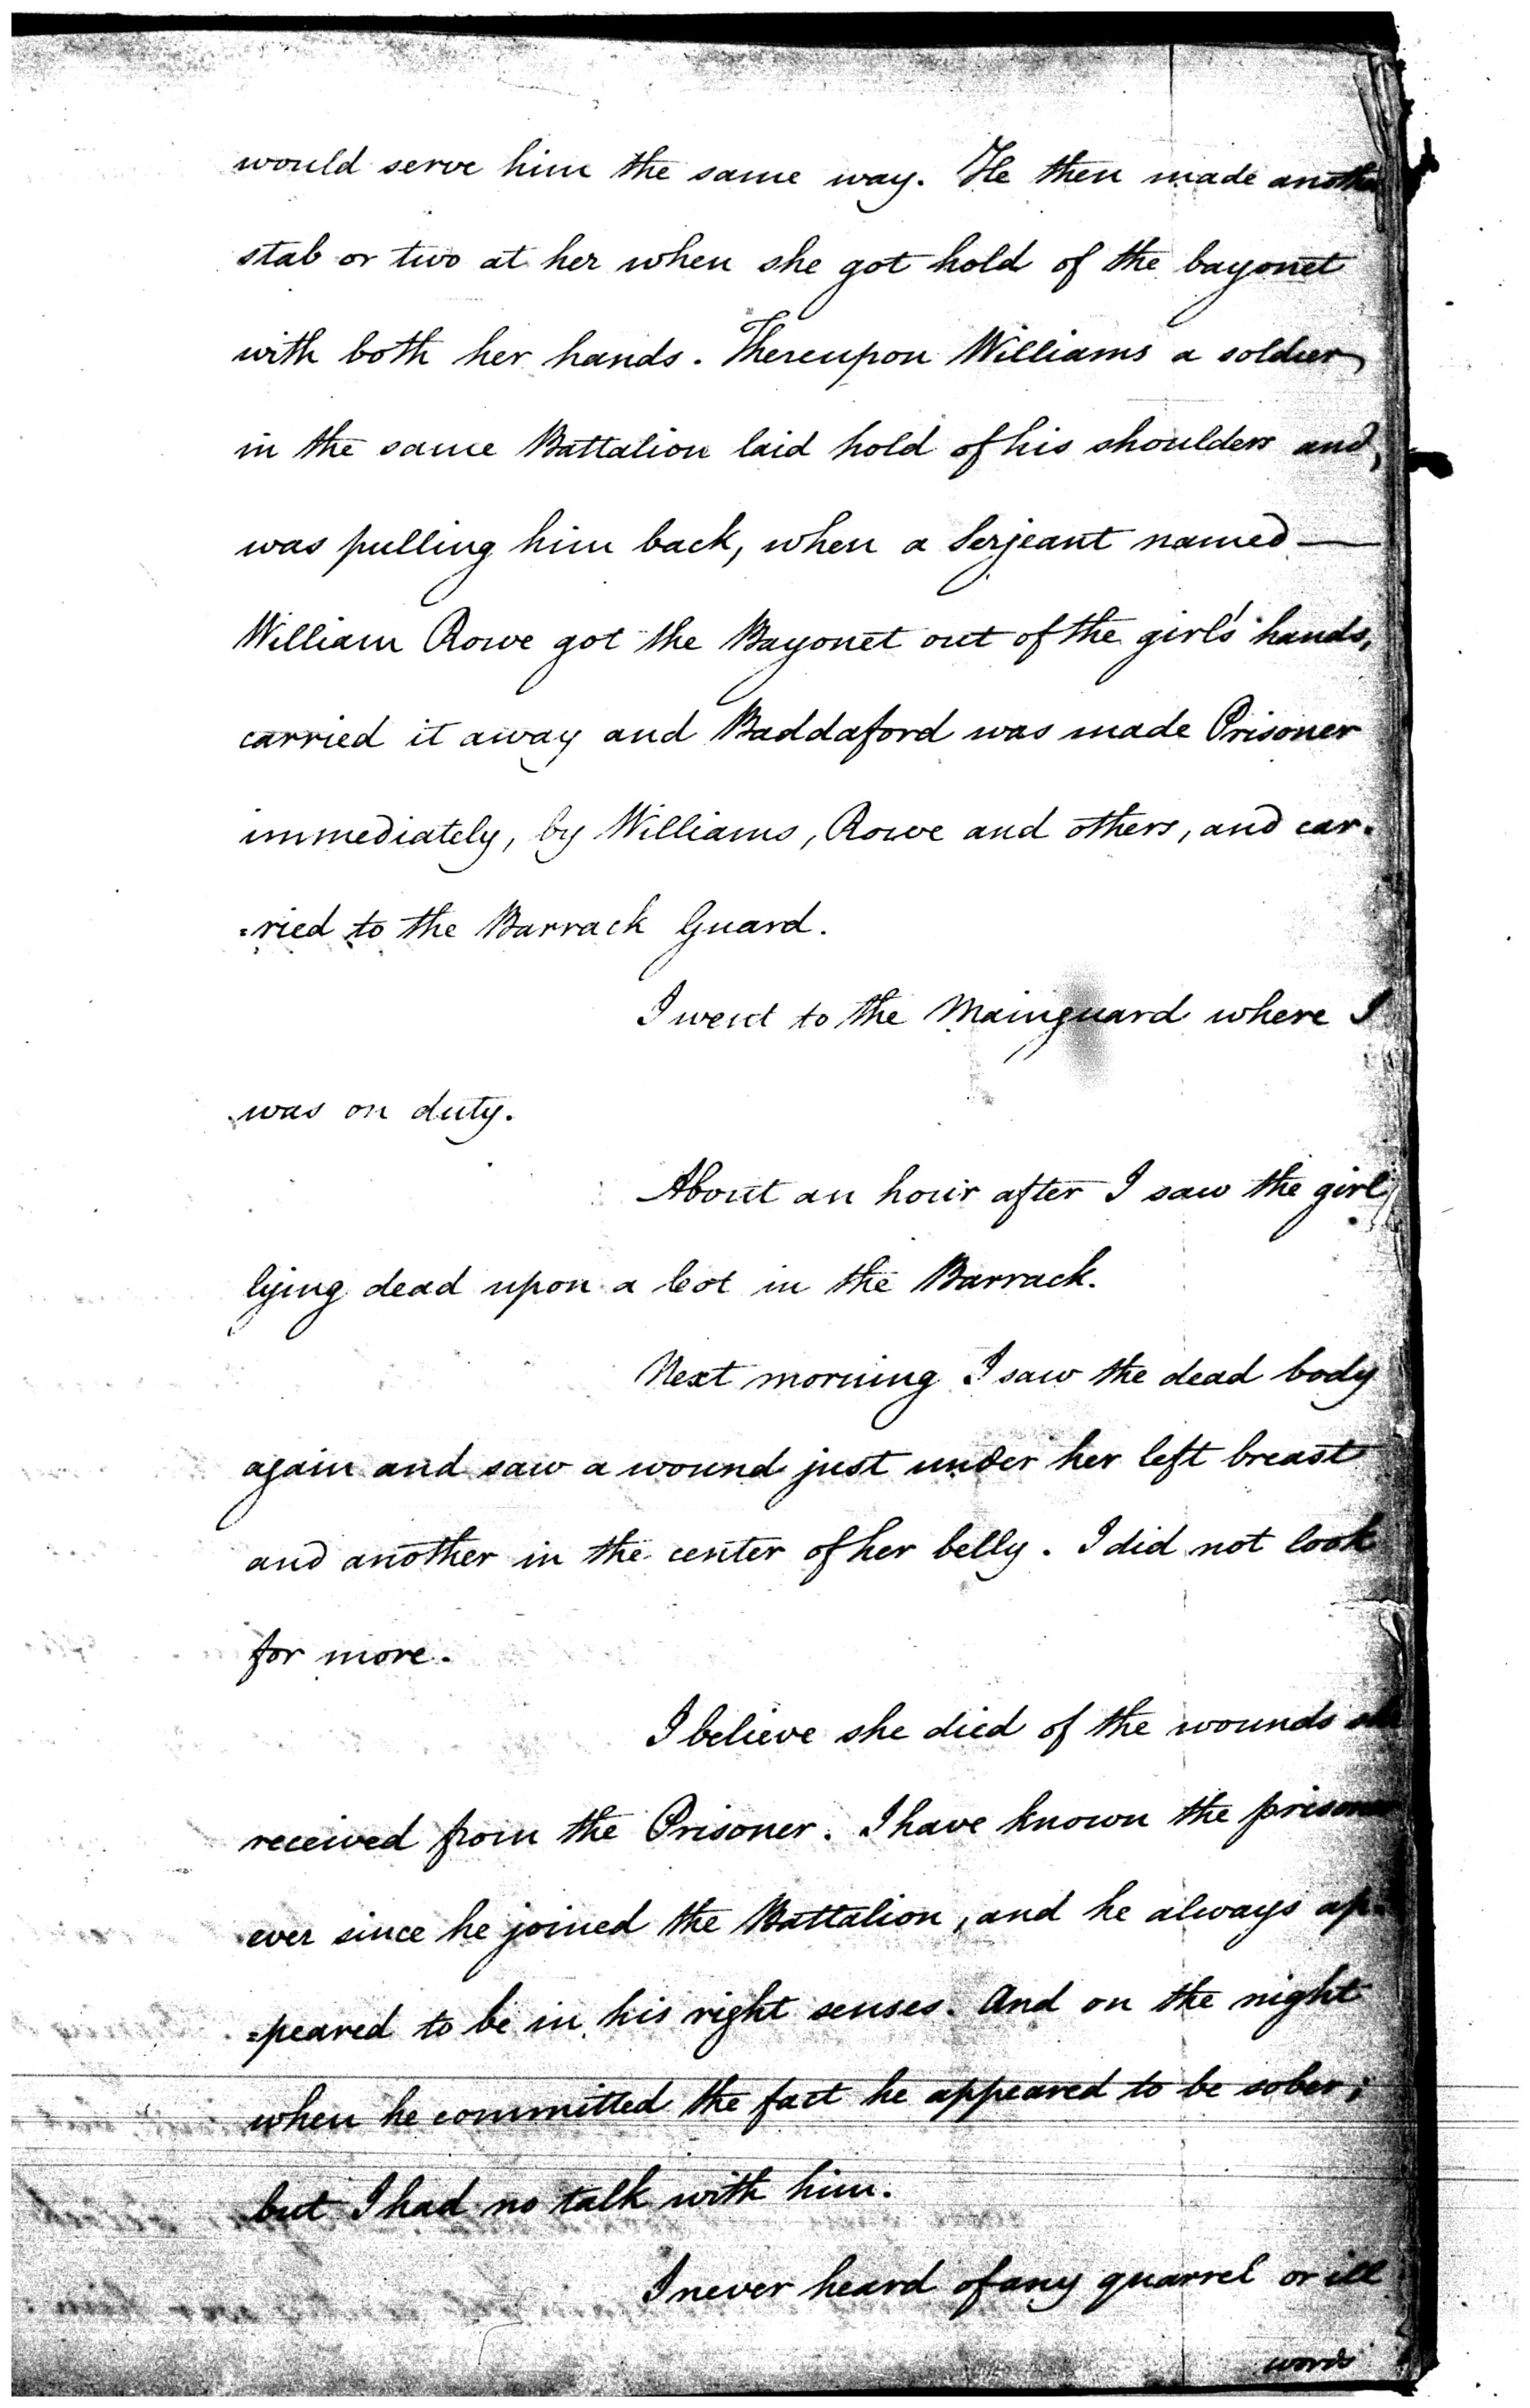 would serve him the same way. He then made another
stab or two at her when she got hold of the bayonet
with both her hands. Thereupon Williams a soldier
in the same Battalion laid hold of his shoulders and,
was pulling him back, when a Serjeant named —
William Rowe got the Bayonet out of the girl's hands,
carried it away and Baddaford was made Prisoner
immediately, by Williams, Rowe and others, and car-
=ried to the Barrack Guard.
I went to the Mainguard where I
was on duty.
About an hour after I saw the girl
lying dead upon a Cot in the Barrack.
Next morning I saw the dead body
again and saw a wound just under her left breast
and another in the center of her belly. I did not look
for more.
I believe she died of the wounds she
received from the Prisoner. I have known the prisoner
ever since he joined the Battalion, and he always ap-
=peared to be in his right senses. And on the night
when he committed the fact he appeared to be sober;
but I had no talk with him.
I never heard of any quarrel or ill
words